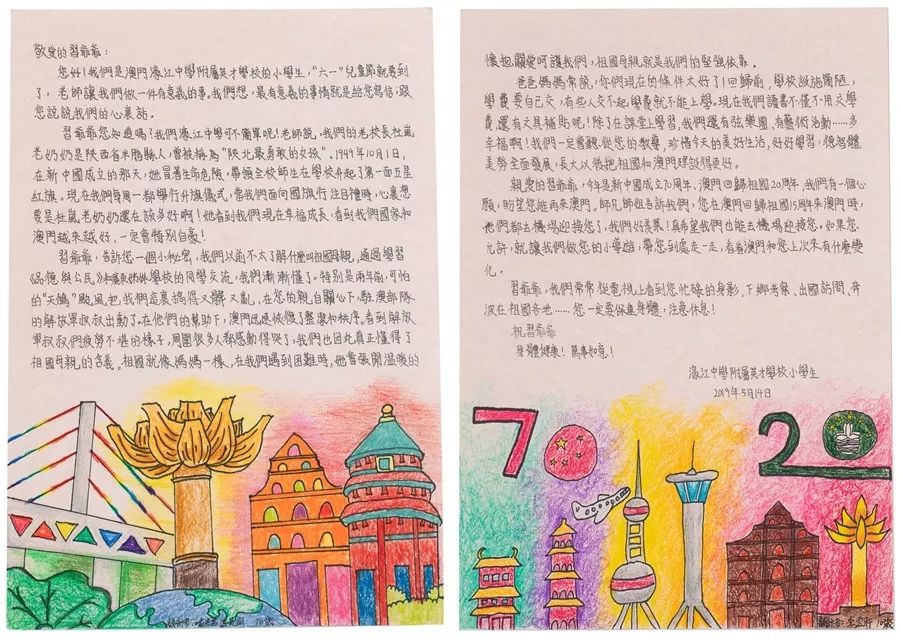 敬愛的習爺爺：
您好！我們是澳門濠江中學附屬英才學校的小學生，“六一”兒童節就要到
了，老師讓我們做一件有意義的事。我們想，最有意義的事情就是給您寫信，跟
您說說我們的心裏話。
習爺爺您知道嗎？我們濠江中學可不簡單呢！老師說，我們的老校長杜嵐
老奶奶是陝西省米脂縣人，曾被稱為“陝北最勇敢的女孩”。1949年10月1日，
在新中國成立的那天，她冒着生命危險，帶領全校師生在學校升起了第一面五星
紅旗。現在我們每周一都舉行升旗儀式，當我們面向國旗行注目禮時，心裏想
要是杜嵐老奶奶還在該多好啊！她看到我們現在幸福成長，看到我們國家和
澳門越來越好，一定會特別自豪！
習爺爺，告訴您一個小秘密，我們以前不太了解什麼叫祖國母親，通過學習
《品德與公民》和廣東姊妹學校的同學交流，我們漸漸懂了。特別是兩年前，可怕
的“天鴿”颱風把我們這裏搞得又髒又亂，在您的親自關心下，駐澳部隊
的解放軍叔叔出動了。在他們的幫助下，澳門迅速恢復了整潔和秩序。看到解放
軍叔叔們疲勞不堪的樣子，周圍很多人都感動得哭了，我們也因此真正懂得了
祖國母親的含義。祖國就像媽媽一樣，在我們遇到困難時，她會張開溫暖的
懷抱關愛呵護我們，祖國母親就是我們的堅強依靠。
爸爸媽媽常說，你們現在的條件太好了！回歸前，學校設施簡陋，
學費要自己交，有些人交不起學費就不能上學。現在我們讀書不僅不用交學
費還有文具補貼呢！除了在課堂上學習，我們還有弦樂團，有藝術活動……多
幸福啊！我們一定會聽從您的教導，珍惜今天的美好生活，好好學習，德智體
美勞全面發展，長大以後把祖國和澳門建設得更好。
親愛的習爺爺，今年是新中國成立70周年、澳門回歸祖國20周年，我們有一個心
願，盼望您能再來澳門。師兄師姐告訴我們，您在澳門回歸祖國15周年來澳門時，
他們都去機場迎接您了，我們好羨慕！真希望我們也能去機場迎接您。如果您
允許，就讓我們做您的小導遊，帶您到處走一走，看看澳門和您上次來有什麼變
化。
習爺爺，我們常常從電視上看到您忙碌的身影，下鄉考察、出國訪問、奔
波在祖國各地……您一定要保重身體，注意休息！
祝習爺爺
身體健康！萬事如意！
濠江中學附屬英才學校小學生
2019年5月14日
70
20
10歲
10歲